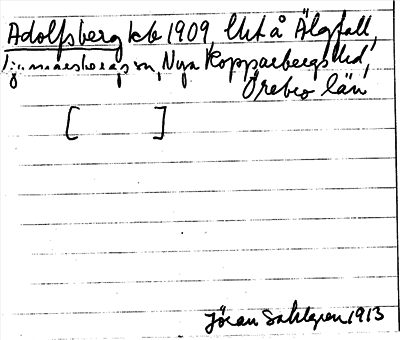 Adolfsberg kb 1909, lht å Älgfall,
Ljusnarsbergs sn, Nya Kopparbergs bd,
Örebro län
[ ]
Jöran Sahlgren 1913